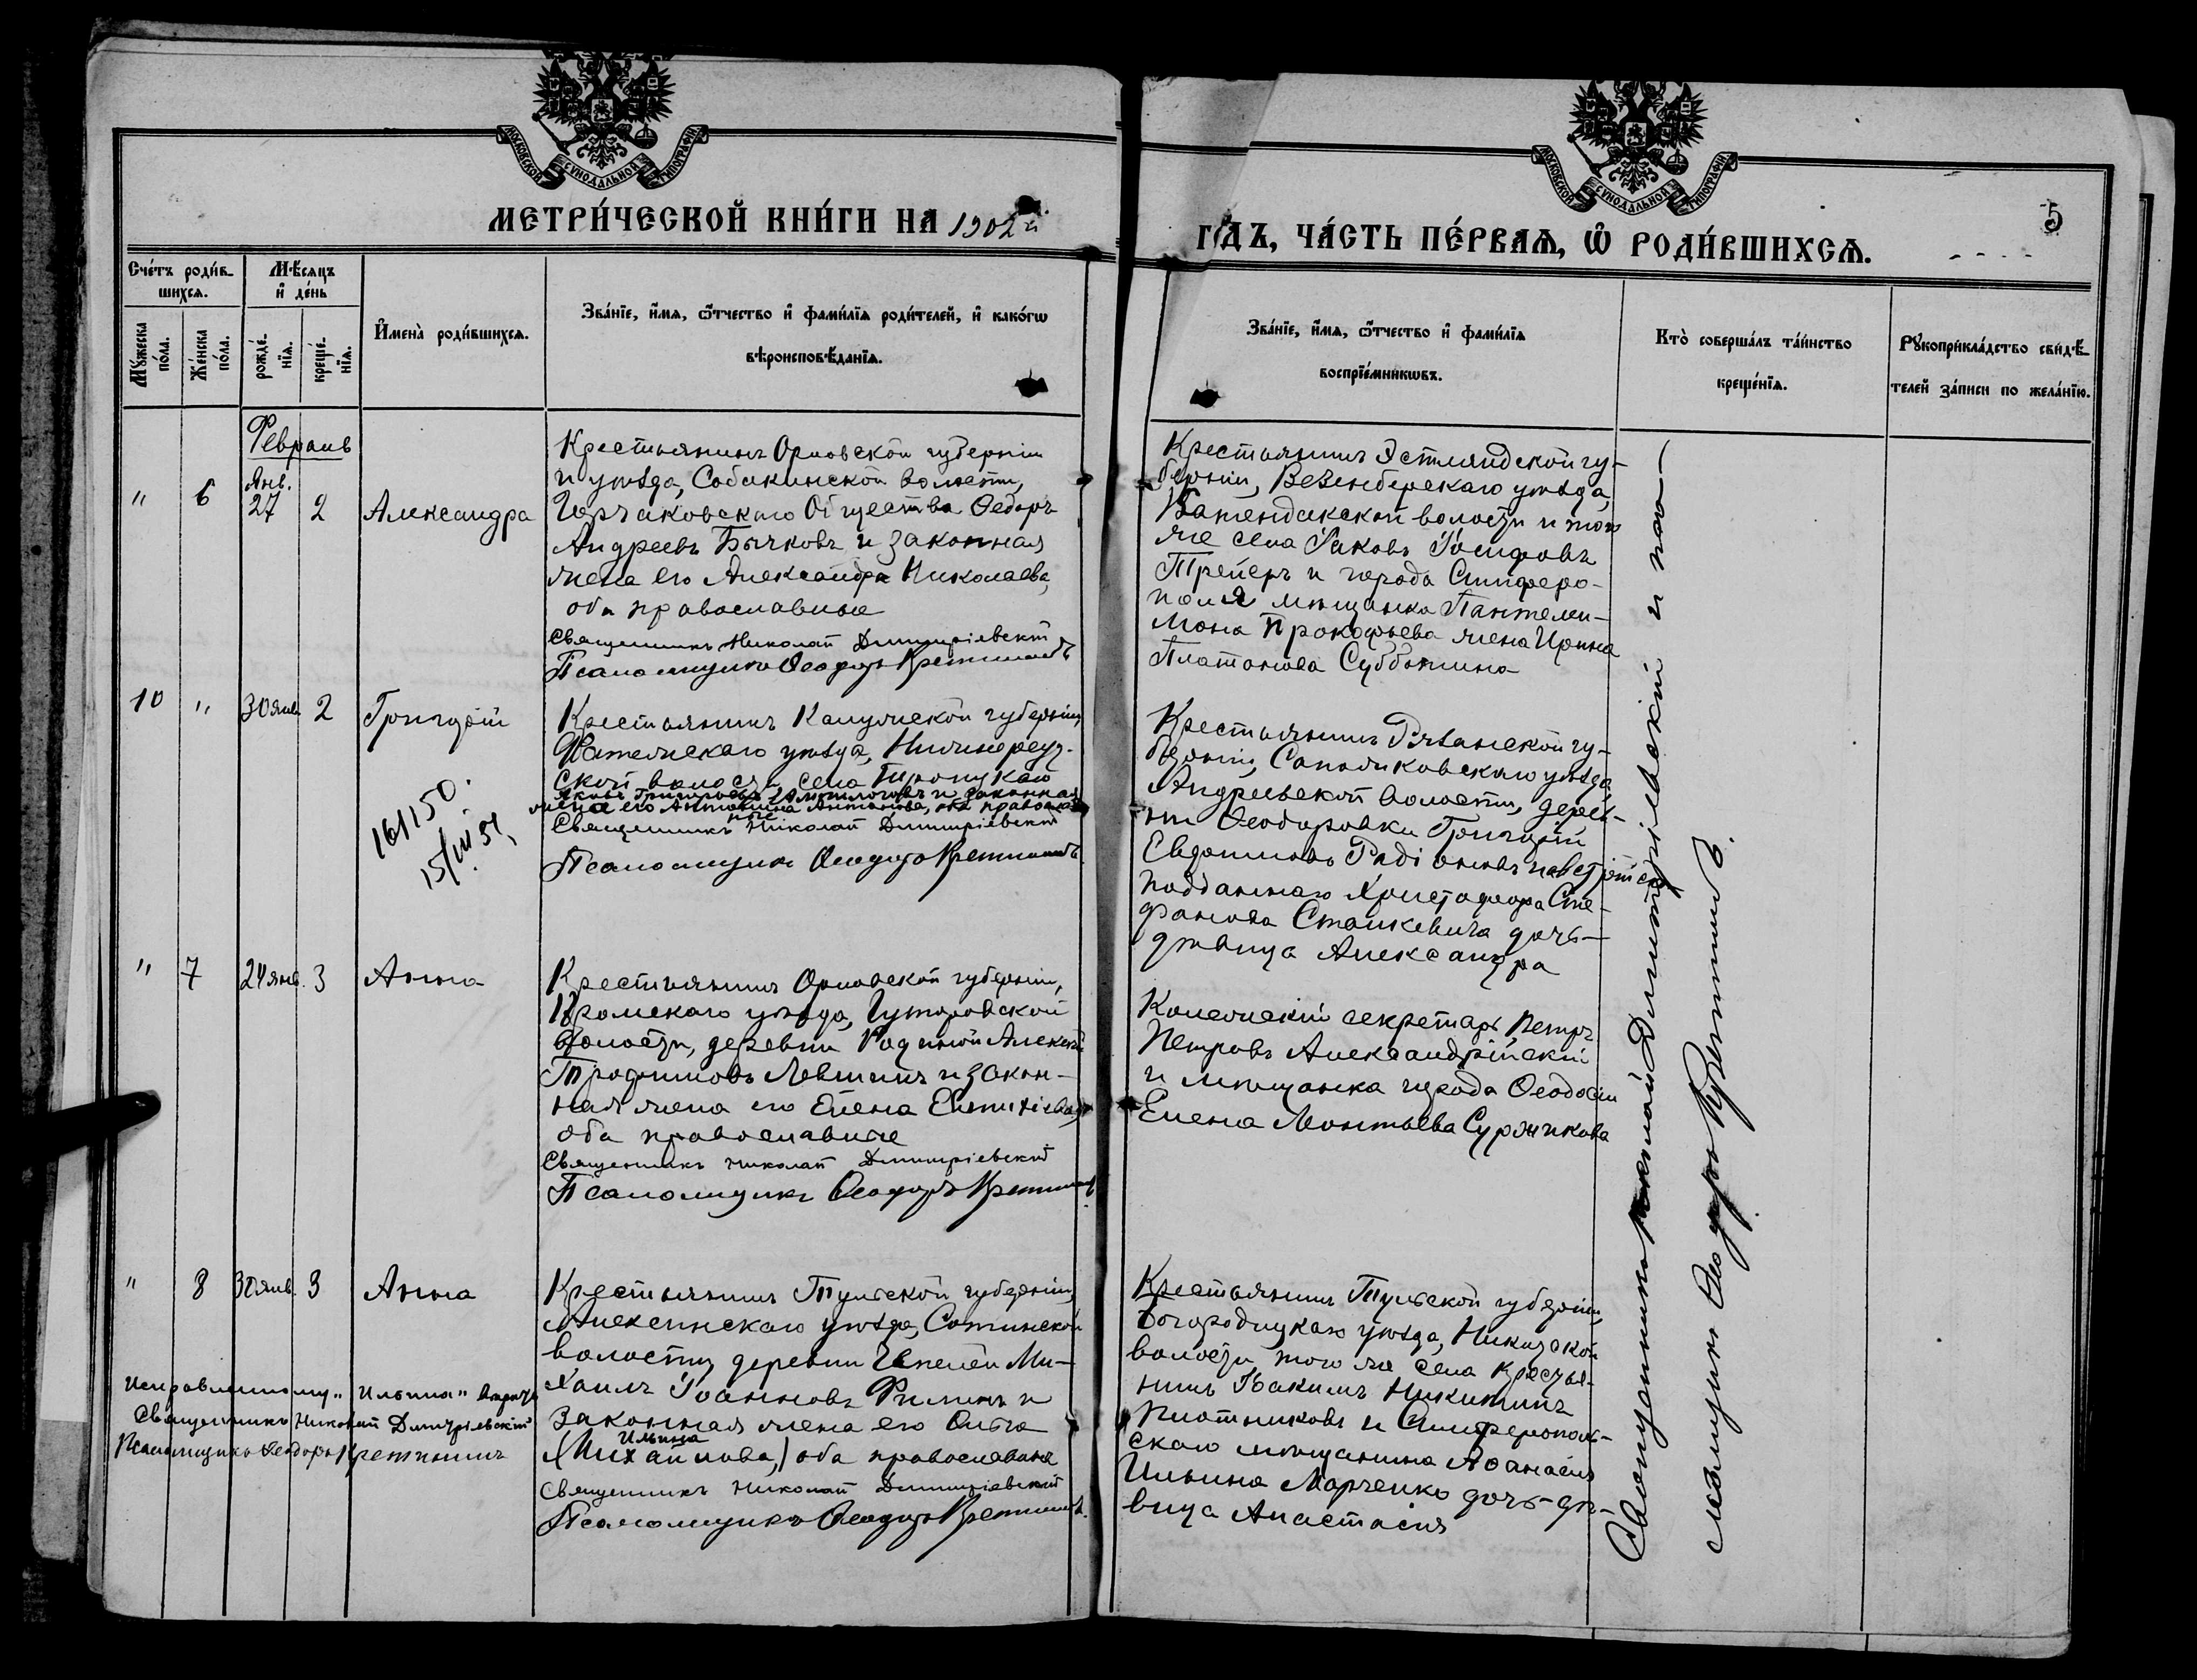 МОСКОВСКОЙ СѴНОДАЛЬНОЙ ТИПОГРАФІИ
МОСКОВСКОЙ СѴНОДАЛЬНОЙ ТИПОГРАФІИ
МЕТРИ́ЧЕСКОЙ КНИ́ГИ НА 1902й
ГО́ДЪ, ЧА́СТЬ ПЕ́РВАѦ, Ѽ РОДИ́ВШИХСѦ.
5
Сче́тъ роди́в-
шихсѧ.
Мѣ́сѧцъ
и҆ де́нь
Мꙋ́жеска
по́ла.
Же́нска
по́ла.
рожде́-
нїѧ.
креще́-
нїѧ.
И҆мена̀ роди́вшихсѧ.
Зва́нїе, и҆́мѧ, ѻ҆́тчество и҆ фами́лїѧ роди́телей, и҆ како́гѡ
вѣроисповѣ́данїѧ.
Зва́нїе, и҆́мѧ, ѻ҆́тчество и҆ фами́лїѧ
воспрїе́мникѡвъ.
Кто̀ соверша́лъ та́инство
креще́нїѧ.
Рꙋкоприкла́дство свидѣ́-
телей за́писи по жела́нїю.
Февраль
" 6 Янв. 27 2 Александра
Крестьянинъ Орловской губерніи
и уѣзда, Собакинской волости,
Горчаковскаго Общества Ѳедоръ
Андреевъ Бычковъ и законная
жена его Александра Николаева,
оба православные
Священникъ Николай Димитріевскій
Псаломщикъ Ѳеодоръ Кретининъ
Крестьянинъ Эстляндской гу-
берніи, Везенбергскаго уѣзда,
волости и того
же села Іаковъ Іосифовъ
Трейеръ и города Симферо-
поля мѣщанка Пантелеи-
мона Прокофьева жена Ирина
Платонова Субботина
10 " 30 янв. 2 Григорій
161150.
15/III 51,
Крестьянинъ Калужской губерніи,
уѣзда,
ской волости, села
Яковъ Григорьевъ и законная
жена его Антонина Антонова, оба православ-
ные
Священникъ Николай Димитріевскій
Псаломщикъ Ѳеодоръ Кретининъ
Крестьянинъ Рязанской гу-
берніи, Сапожковскаго уѣзда,
Андреевской волости, дерев-
ни Ѳеодоровки Григорій
Евдокимовъ Радіоновъ и австрійскаго
подданнаго Христофора Сте-
фанова Станкевича дочь-
дѣвица Александра
" 7 24 янв. 3 Анна
Крестьянинъ Орловской губерніи,
Кромскаго уѣзда, Гуторовской
волости, деревни Родиной Алексѣй
Трофимовъ Левшинъ и закон-
ная жена его Елена Евтихіева,
оба православные
Священникъ Николай Димитріевскій
Псаломщикъ Ѳеодоръ Кретининъ
Коллежскій секретарь Петръ
Петровъ Александрійскій
и мѣщанка города Ѳеодосіи
Елена Леонтьева Суржикова
" 8 30 янв. 3 Анна
Крестьянинъ Тульской губерніи,
Алексинскаго уѣзда, Сотинской
волости, деревни Ми-
хаилъ Іоанновъ Филинъ и
законная жена его Ольга
Ильина
(Михайлова,) оба православные
Священникъ Николай Димитріевскій
Псаломщикъ Ѳеодоръ Кретининъ
Исправленному „Ильина"
Священникъ Николай Димитріевскій
Псаломщикъ Ѳеодоръ Кретининъ
Крестьянинъ Тульской губерніи,
Богородицкаго уѣзда, Никитской
волости, того же села крестья-
нинъ Іоакимъ Никитинъ
Плотниковъ и Симферополь-
скаго мѣщанина Аѳанасія
Ильина Марченко дочь-дѣ-
вица Анастасія
Священникъ Николай Димитріевскій и пса-
ломщикъ Ѳеодоръ Кретининъ.